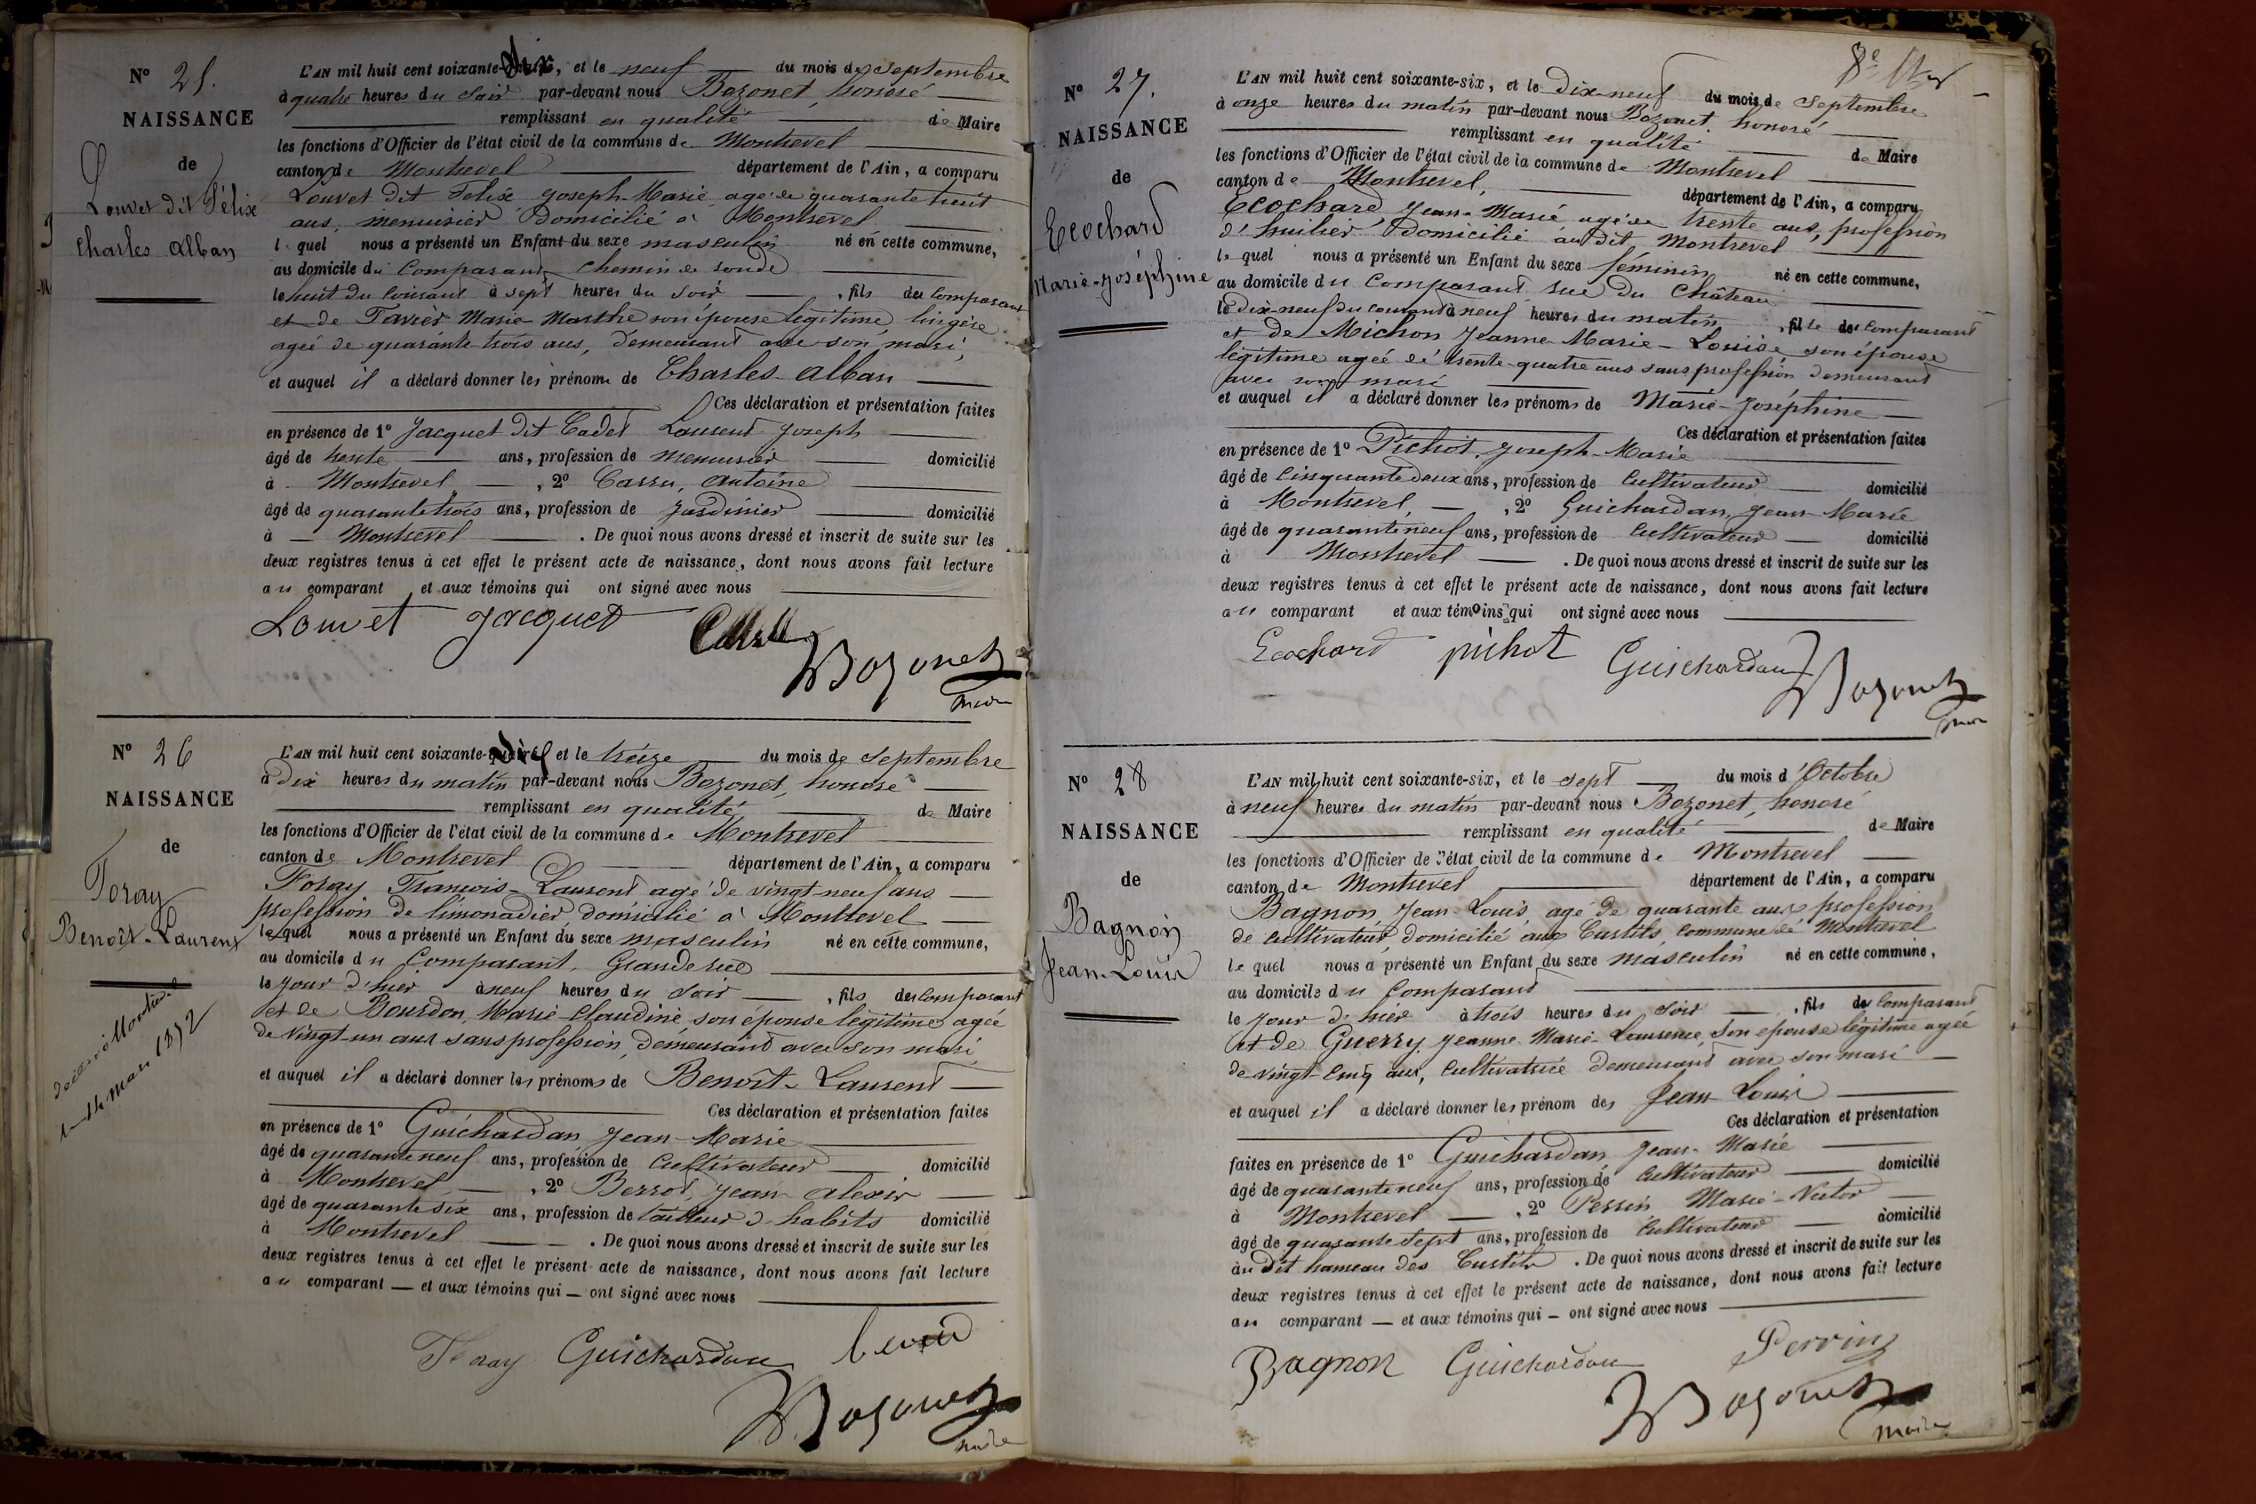 N° 25.
NAISSANCE
de
Louvet dit Félix
Charles Alban
L'AN mil huit cent soixante-six, et le neuf du mois de Septembre
à quatre heures du Soir par-devant nous Bozonet, honoré
remplissant en qualité de Maire
les fonctions d'Officier de l'état civil de la commune de Montrevel
canton de Montrevel département de l'Ain, a comparu
Louvet dit Félix Joseph-Marie agé de quarante huit
ans, menuisier Domicilié à Montrevel
lequel nous a présenté un Enfant du sexe masculin né en cette commune,
au domicile du Comparant, chemin de ronde
le huit du Courant à sept heures du Soir, fils du Comparant
et de Tavier Marie Marthe son épouse légitime, lingère
agée de quarante trois ans, demeurant avec son mari,
et auquel il a déclaré donner les prénoms de Charles-Alban
Ces déclaration et présentation faites
en présence de 1° Jacquet dit Cadet Laurent Joseph
âgé de trente ans, profession de menuisier domicilié
à Montrevel, 2° Carru, Antoine
âgé de quarante trois ans, profession de Jardinier domicilié
à Montrevel. De quoi nous avons dressé et inscrit de suite sur les
deux registres tenus à cet effet le présent acte de naissance, dont nous avons fait lecture
au comparant et aux témoins qui ont signé avec nous
Louvet Jacquet
Bozonet
maire
N° 26
NAISSANCE
de
Foray
Benoît-Laurent
décédé à Montrevel
le 14 mars 1892
L'AN mil huit cent soixante-six et le treize du mois de Septembre
à dix heures du matin par-devant nous Bozonet, honoré
remplissant en qualité de Maire
les fonctions d'Officier de l'état civil de la commune de Montrevel
canton de Montrevel département de l'Ain, a comparu
Foray François-Laurent agé de vingt neuf ans
profession de limonadier, domicilié à Montrevel
lequel nous a présenté un Enfant du sexe masculin né en cette commune,
au domicile du Comparant, Grande rue
le jour d'hier à neuf heures du Soir, fils du Comparant
et de Bourdon, Marie-Claudine, son épouse légitime agée
de vingt-un ans sans profession, demeurant avec son mari
et auquel il a déclaré donner les prénoms de Benoît-Laurent
Ces déclaration et présentation faites
en présence de 1° Guichardan Jean-Marie
âgé de quarante neuf ans, profession de Cultivateur domicilié
à Montrevel, 2° Berrod, Jean Alexis
âgé de quarante six ans, profession de tailleur d'habits domicilié
à Montrevel. De quoi nous avons dressé et inscrit de suite sur les
deux registres tenus à cet effet le présent acte de naissance, dont nous avons fait lecture
au comparant et aux témoins qui ont signé avec nous
Foray Guichardan
Bozonet
maire
N° 27.
NAISSANCE
de
Ecochard
Marie-Joséphine
L'AN mil huit cent soixante-six, et le Dix-neuf du mois de Septembre
à onze heures du matin par-devant nous Bozonet, honoré
remplissant en qualité de Maire
les fonctions d'Officier de l'état civil de la commune de Montrevel
canton de Montrevel, département de l'Ain, a comparu
Ecochard, Jean-Marie agé de trente ans, profession
d'huilier Domicilié au dit Montrevel
lequel nous a présenté un Enfant du sexe féminin né en cette commune,
au domicile du Comparant rue du Château
le dix-neuf du courant à neuf heures du matin, fille du Comparant
et de Michon Jeanne-Marie-Louise son épouse
légitime agée de trente-quatre ans sans profession demeurant
avec son mari
et auquel il a déclaré donner les prénoms de Marie-Joséphine
Ces déclaration et présentation faites
en présence de 1° Pichot, Joseph-Marie
âgé de Cinquante deux ans, profession de Cultivateur domicilié
à Montrevel, 2° Guichardan, Jean-Marie
âgé de quarante neuf ans, profession de Cultivateur domicilié
à Montrevel. De quoi nous avons dressé et inscrit de suite sur les
deux registres tenus à cet effet le présent acte de naissance, dont nous avons fait lecture
au comparant et aux témoins qui ont signé avec nous
Ecochard pichot Guichardan
Bozonet
maire
N° 28
NAISSANCE
de
Bagnon
Jean-Louis
L'AN mil huit cent soixante-six, et le sept du mois d'Octobre
à neuf heures du matin par-devant nous Bozonet, honoré
remplissant en qualité de Maire
les fonctions d'Officier de l'état civil de la commune de Montrevel
canton de Montrevel département de l'Ain, a comparu
Bagnon, Jean Louis, agé de quarante ans profession
de cultivateur, domicilié aux Custits, commune de Montrevel
lequel nous a présenté un Enfant du sexe masculin né en cette commune,
au domicile du Comparant
le jour d'hier à trois heures du Soir, fils du Comparant
et de Guerry Jeanne Marie-Laurence, son épouse légitime agée
de vingt-cinq ans, Cultivatrice demeurant avec son mari
et auquel il a déclaré donner les prénom des Jean Louis
Ces déclaration et présentation
faites en présence de 1° Guichardan Jean-Marie
âgé de quarante neuf ans, profession de Cultivateur domicilié
à Montrevel, 2° Perrin Marie-Victor
âgé de quarante sept ans, profession de Cultivateur domicilié
au Dit hameau des Custits. De quoi nous avons dressé et inscrit de suite sur les
deux registres tenus à cet effet le présent acte de naissance, dont nous avons fait lecture
au comparant et aux témoins qui ont signé avec nous
Bagnon Guichardan Perrin
Bozonet
maire